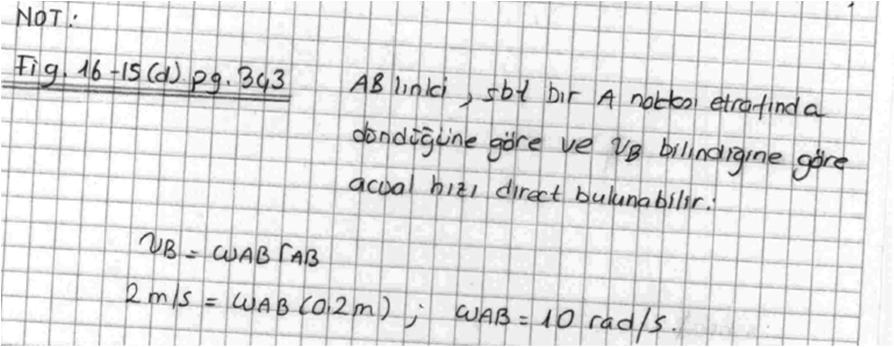 NOT:
Fig. 16-15(d) pg. 343
AB linki, sbt bir A noktası etrafında
döndüğüne göre ve VB bilindiğine göre
açısal hızı direct bulunabilir:
VB = ωAB rAB
2 m/s = ωAB (0.2m) ; ωAB = 10 rad/s.